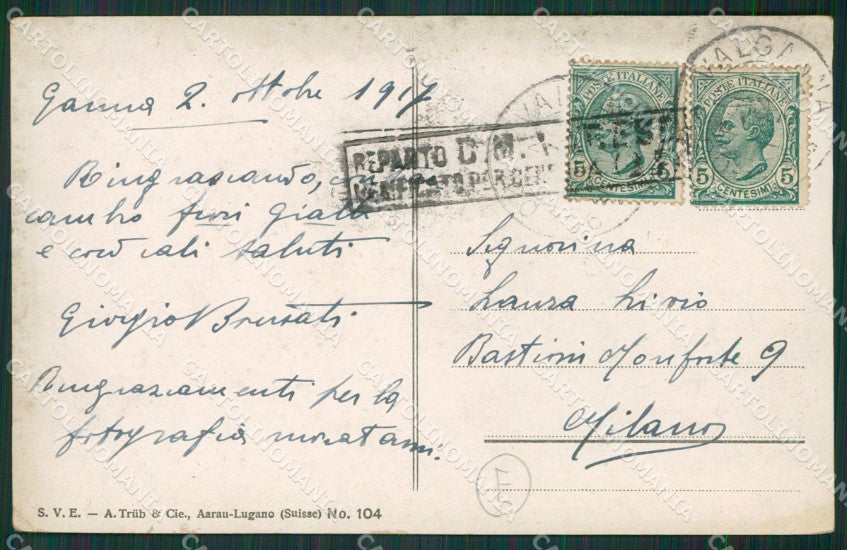 Ganna 2. ottobre 1917
Ringraziando, 
cambio fiori gialli
e cordiali saluti
Giorgio Brusati
Ringraziamenti per la
fotografia
REPARTO C M.
VERIFICATO PER CEN
VALGANNA
POSTE ITALIANE
5 5
CENTESIMI
POSTE ITALIANE
5 5
CENTESIMI
Signorina
Laura Livio
Bastioni Monforte 9
Milano
S. V. E. — A. Trüb & Cie., Aarau-Lugano (Suisse) No. 104
CARTOLINOMANIA